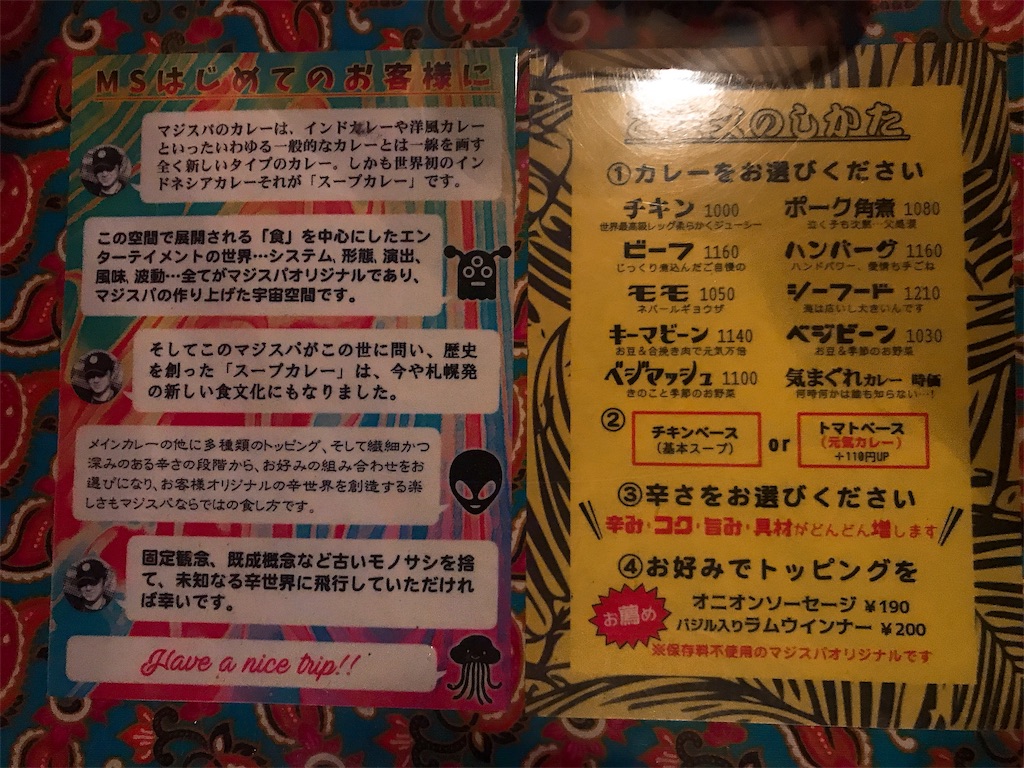 MSはじめてのお客様に
マジスパのカレーは、インドカレーや洋風カレー
といったいわゆる一般的なカレーとは一線を画す
全く新しいタイプのカレー。しかも世界初のイン
ドネシアカレーそれが「スープカレー」です。
この空間で展開される「食」を中心にしたエン
ターテイメントの世界…システム,形態,演出、
風味,波動…全てがマジスパオリジナルであり、
マジスパの作り上げた宇宙空間です。
そしてこのマジスパがこの世に問い、歴史
を創った「スープカレー」は、今や札幌発
の新しい食文化にもなりました。
メインカレーの他に多種類のトッピング、そして繊細かつ
深みのある辛さの段階から、お好みの組み合わせをお
選びになり、お客様オリジナルの辛世界を創造する楽
しさもマジスパならではの食し方です。
固定観念、既成概念など古いモノサシを捨
て、未知なる辛世界に飛行していただけれ
ば幸いです。
Have a nice trip!!
のしかた
①カレーをお選びください
チキン 1000
世界最高級レッグ柔らかくジューシー
ポーク角煮 1080
泣く子も沈黙…父感涙
ビーフ 1160
じっくり煮込んだご自慢の
ハンバーグ 1160
ハンドパワー、愛情も手ごね
モモ 1050
ネパールギョウザ
シーフード 1210
海は広いし大きいんです
キーマビーン 1140
お豆&合挽き肉で元気万倍
ベジビーン 1030
お豆&季節のお野菜
ベジマッシュ 1100
きのこと季節のお野菜
気まぐれカレー 時価
何時何かは誰も知らない…!
②
チキンベース
(基本スープ)
or
トマトベース
(元気カレー)
+110円UP
③辛さをお選びください
辛み・コク・旨み・具材がどんどん増します
④お好みでトッピングを
お薦め
オニオンソーセージ ¥190
バジル入りラムウインナー ¥200
※保存料不使用のマジスパオリジナルです